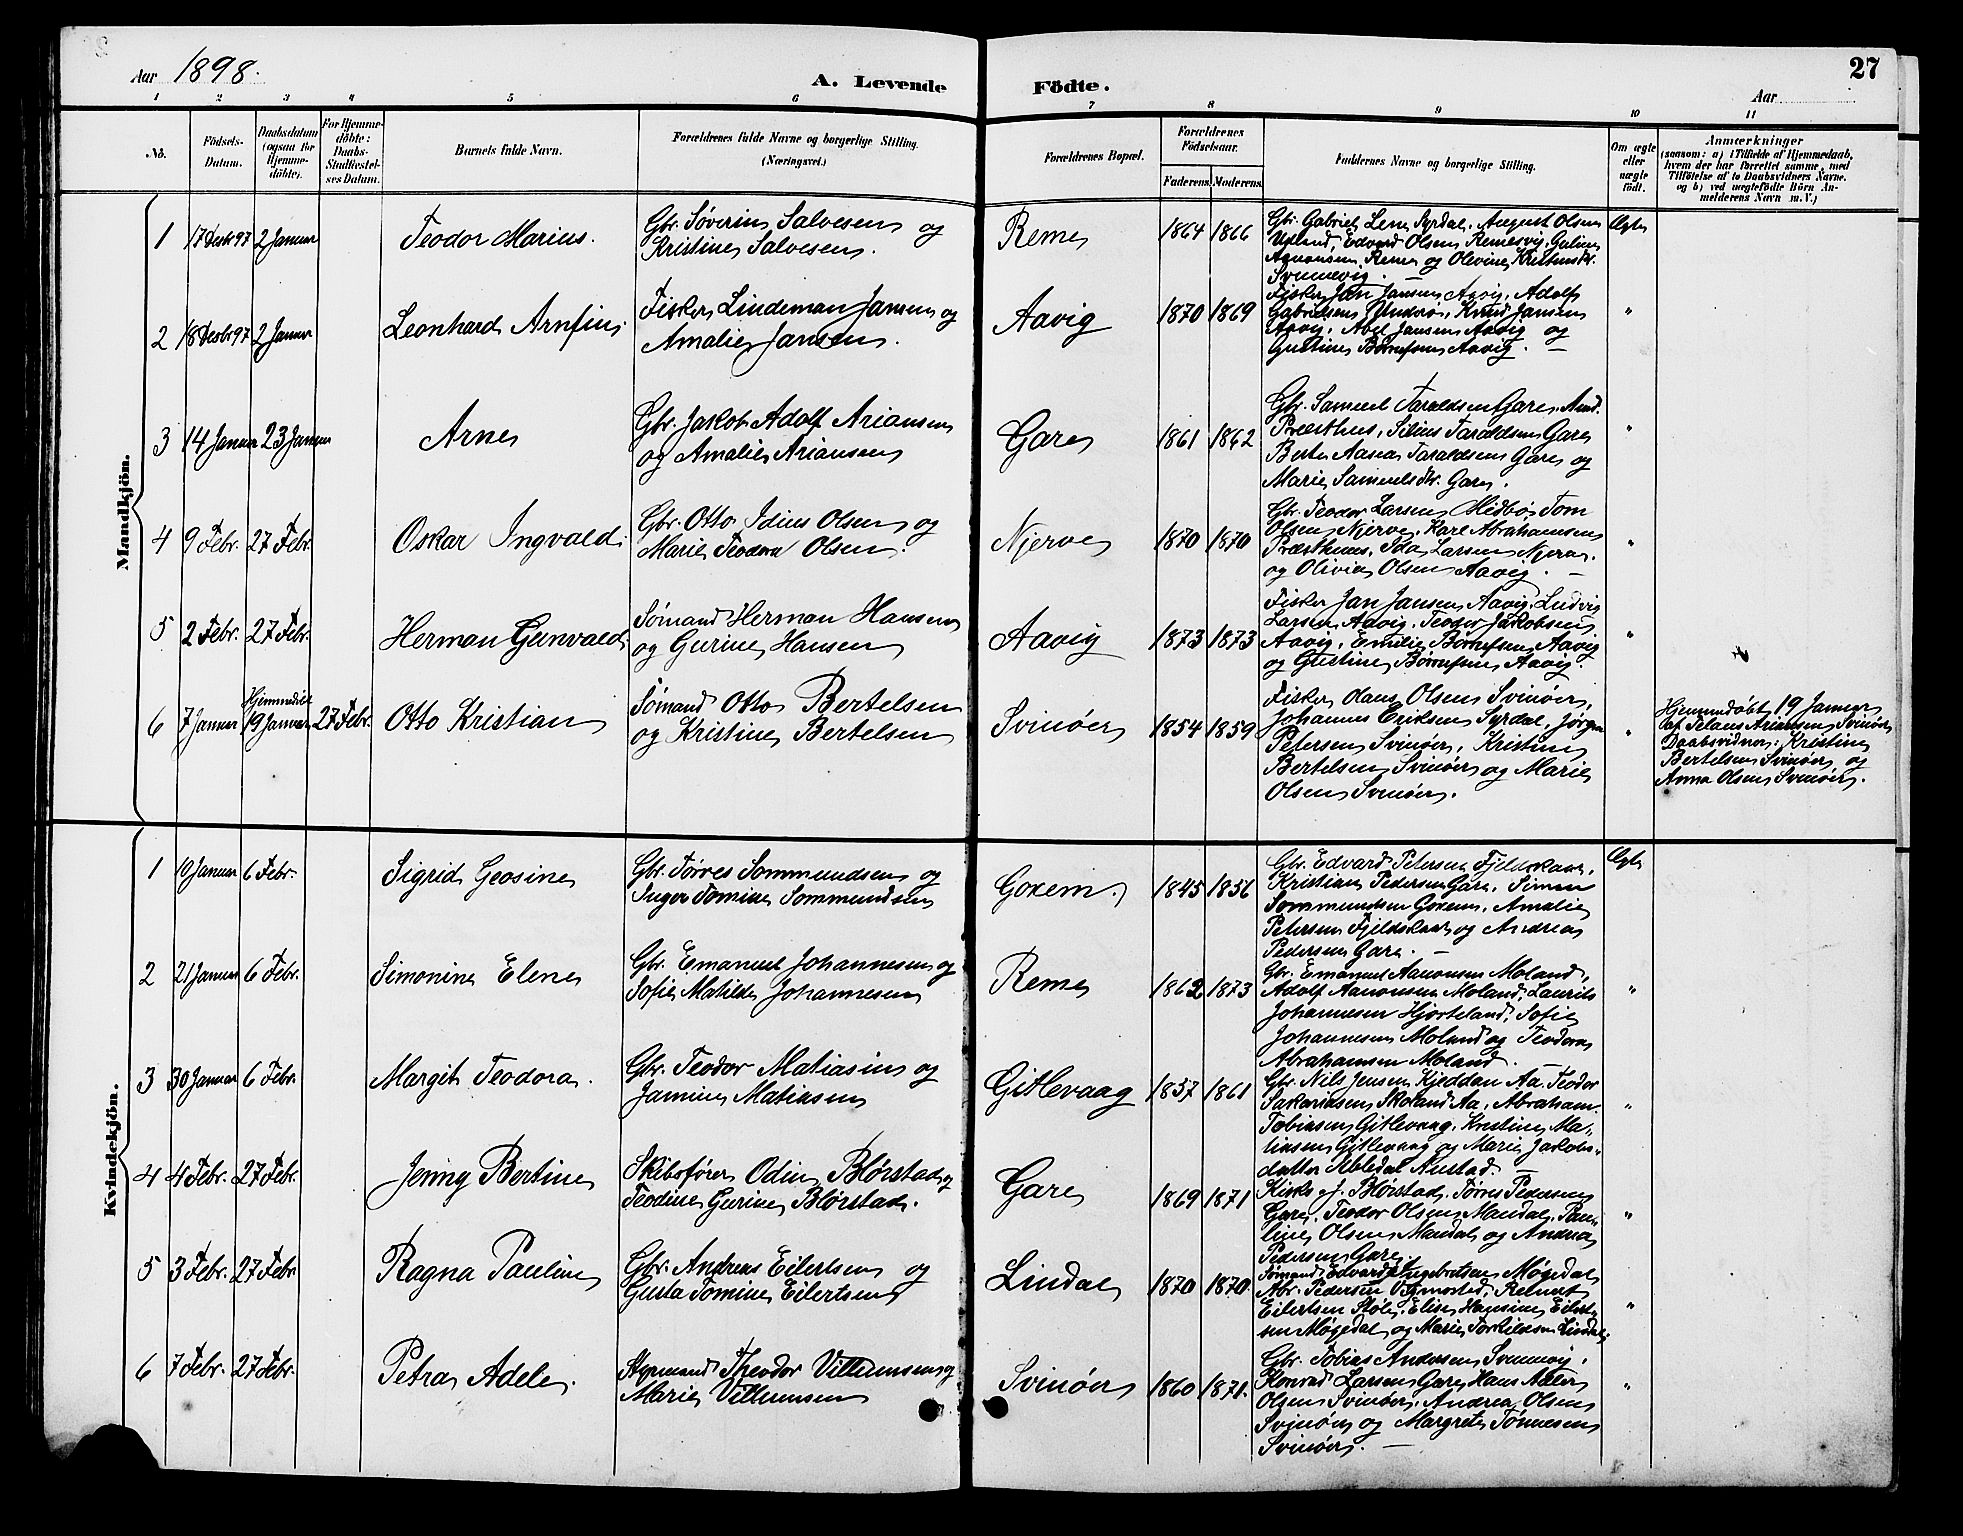 Aar 1898.
A. Levende Födte.
27
Aar
1 2 3 4 5 6 7 8 9 10 11
No.
Födsels-
Datum.
Daabsdatum
(ogsaa for
Hjemme-
döbte).
For Hjemme-
döbte:
Daabs-
Stadfæstel-
ses Datum.
Barnets fulde Navn.
Forældrenes fulde Navne og borgerlige Stilling.
(Næringsvei.)
Forældrenes Bopæl.
Forældrenes
Födselsaar.
Faderens. Moderens.
Faddernes Navne og borgerlige Stilling.
Om ægte
eller
uægte
født.
Anmærkninger
(saasom: a) i Tilfælde af Hjemmedaab,
hvem der har forrettet samme, med
Tilföielse af to Daabsvidners Navne.
og b) ved uægtefödte Börn An-
melderens Navn m.V.)
Mandkjön.
1 17 Decbr 97 2 Januar Teodor Marius.
Gbr. Søverin Salvesen og
Kristine Salvesen.
Reme 1864 1866
Gbr. Gabriel Lene Syrdal, August Olsen
Upland, Edvard Olsen Remesvig, Guline
Aanonsen Reme og Olevine Kristensdtr.
Svinnevig. —
Ægte
2 18 Decbr 97 2 Januar Leonhard Arnfin.
Fisker Lindeman Jansen og
Amalie Jansen.
Aavig 1870 1869
Fisker Jan Jansen Aavig, Adolf
Gabrielsen Undsø, Knud Jansen
Aavig, Abel Jansen Aavig og
Gustine Børrufsen Aavig. —
"
3 14 Januar 23 Januar Arne
Gbr. Jakob Adolf Ariansen
og Amalie Ariansen
Gare 1861 1862
Gbr. Samuel Taraldsen Gare, And.
Præsthus, Silius Taraldsen Gare
Berte Aasea Taraldsen Gare og
Marie Samuelsdtr. Gare.
"
4 9 Febr. 27 Febr. Oskar Ingvald.
Gbr. Otto Idius Olsen og
Marie Teodora Olsen.
Njerve 1870 1870
Gbr. Teodor Larsen Midbø, Tom
Olsen Njerve, Karl Abrahamsen
Præsthus, Ida Larsen Njerve
og Olivia Olsen Aavig. —
"
5 2 Febr. 27 Febr. Herman Gunvald
Sømand Herman Hansen
og Gurine Hansen
Aavig 1873 1873
Fisker Jan Jansen Aavig, Ludvig
Larsen Aavig, Teodor Jakobsen
Aavig, Emilie Børrufsen Aavig
og Gustine Børrufsen Aavig.
"
6 7 Januar Hjemmedöbt 19 Januar 27 Febr. Otto Kristian
Sømand Otto Bertelsen
og Kristine Bertelsen
Svinøer 1854 1859
Fisker Hans Olsen Svinøer,
Johannes Eriksen Syrdal, Jørgen
Petersen Svinøer, Kristine
Bertelsen Svinøer og Marie
Olsen Svinøer.
"
Hjemmedøbt 19 Januar
af Telaus Ariansen Svinøer
Daabsvidner: Kristine
Bertelsen Svinøer og
Anna Olsen Svinøer.
Kvindekjön.
1 10 Januar 6 Febr. Sigrid Geosine
Gbr. Tørres Sommundsen og
Inger Tomine Sommundsen
Goxem. 1845 1856
Gbr. Edvard Petersen Fjeldskaar,
Kristian Pedersen Gare, Simon
Sommundsen Goxem, Amalie
Petersen Fjeldskaar og Andrea
Pedersen Gare. —
Ægte
2 21 Januar 6 Febr. Simonine Elene
Gbr. Emanuel Johannesen og
Sofie Matilde Johannesen
Reme 1862 1873
Gbr. Emanuel Aanonsen Moland,
Adolf Aanonsen Moland, Laurits
Johannesen Hjorteland, Sofie
Johannesen Moland og Teodora
Abrahamsen Moland. —
"
3 30 Januar 6 Febr. Margit Teodora.
Gbr. Teodor Matiasen og
Jamine Matiasen
Gitlevaag 1857 1861
Gbr. Nils Jensen Kjeddan Aa, Teodor
Sakariasen Skoland Aa, Abraham
Tobiasen Gitlevaag, Kristine Ma-
tiasen Gitlevaag og Marie Jakobs-
datter Ubledal Austad. —
"
4 4 Febr. 27 Febr. Jenny Bertine
Skibsfører Odin Blørstad og
Teodine Gurine Blørstad.
Gare 1869 1871
J. Blørstad, Tørres Pedersen
Gare, Teodor Olsen Mandal, Pau-
line Olsen Mandal og Andrea
Pedersen Gare.
"
5 3 Febr. 27 Febr. Ragna Pauline
Gbr. Andreas Eilertsen og
Gusta Tomine Eilertsen
Lindal 1870 1870
Sømand Edvard Ingebretsen Møgedal
Abr. Pedersen Vigmostad, Reinert
Eilertsen Støle, Elise Hansine Eilert-
sen Møgedal og Marie Torkildsen Lindal.
"
6 7 Febr. 27 Febr. Petra Adele.
Styrmand Theodor Villumsen og
Marie Villumsen
Svinøer 1860 1871.
Gbr. Tobias Andersen Svinnevig,
Konrad Larsen Gare, Hans Adler
Olsen Svinøer, Andrea Olsen
Svinøer og Margrete Tønnesen
Svinøer. —
"